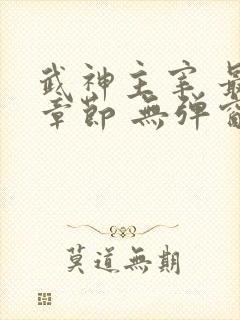 武神主宰 最
章節 無弹窗
莫道無期